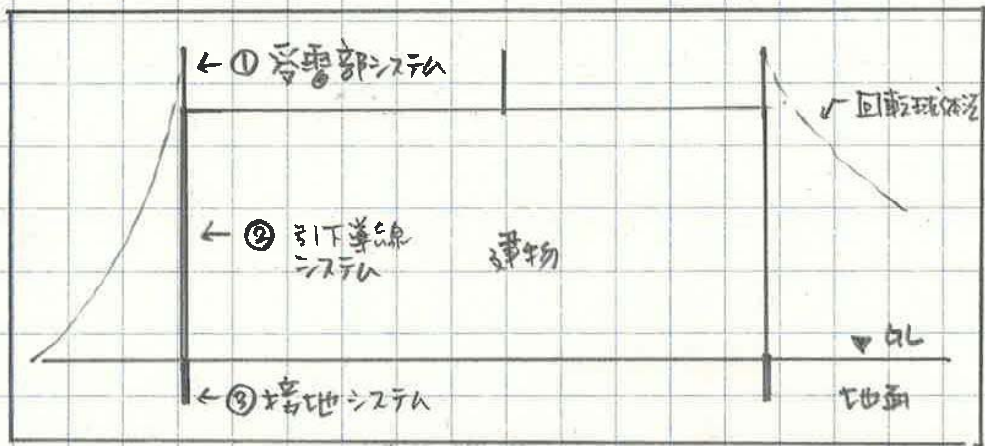 ← ① 受雷部システム
← 回転球体法
← ② 引下導線
システム
建物
▼ GL
← ③ 接地システム
地面